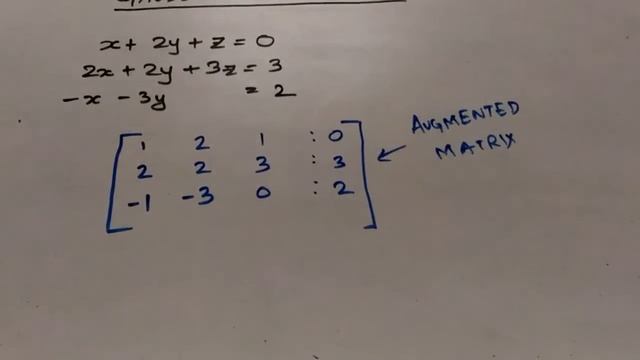 x + 2y + z = 0
2x + 2y + 3z = 3
-x - 3y = 2
1 2 1 : 0
2 2 3 : 3
-1 -3 0 : 2
AUGMENTED
MATRIX